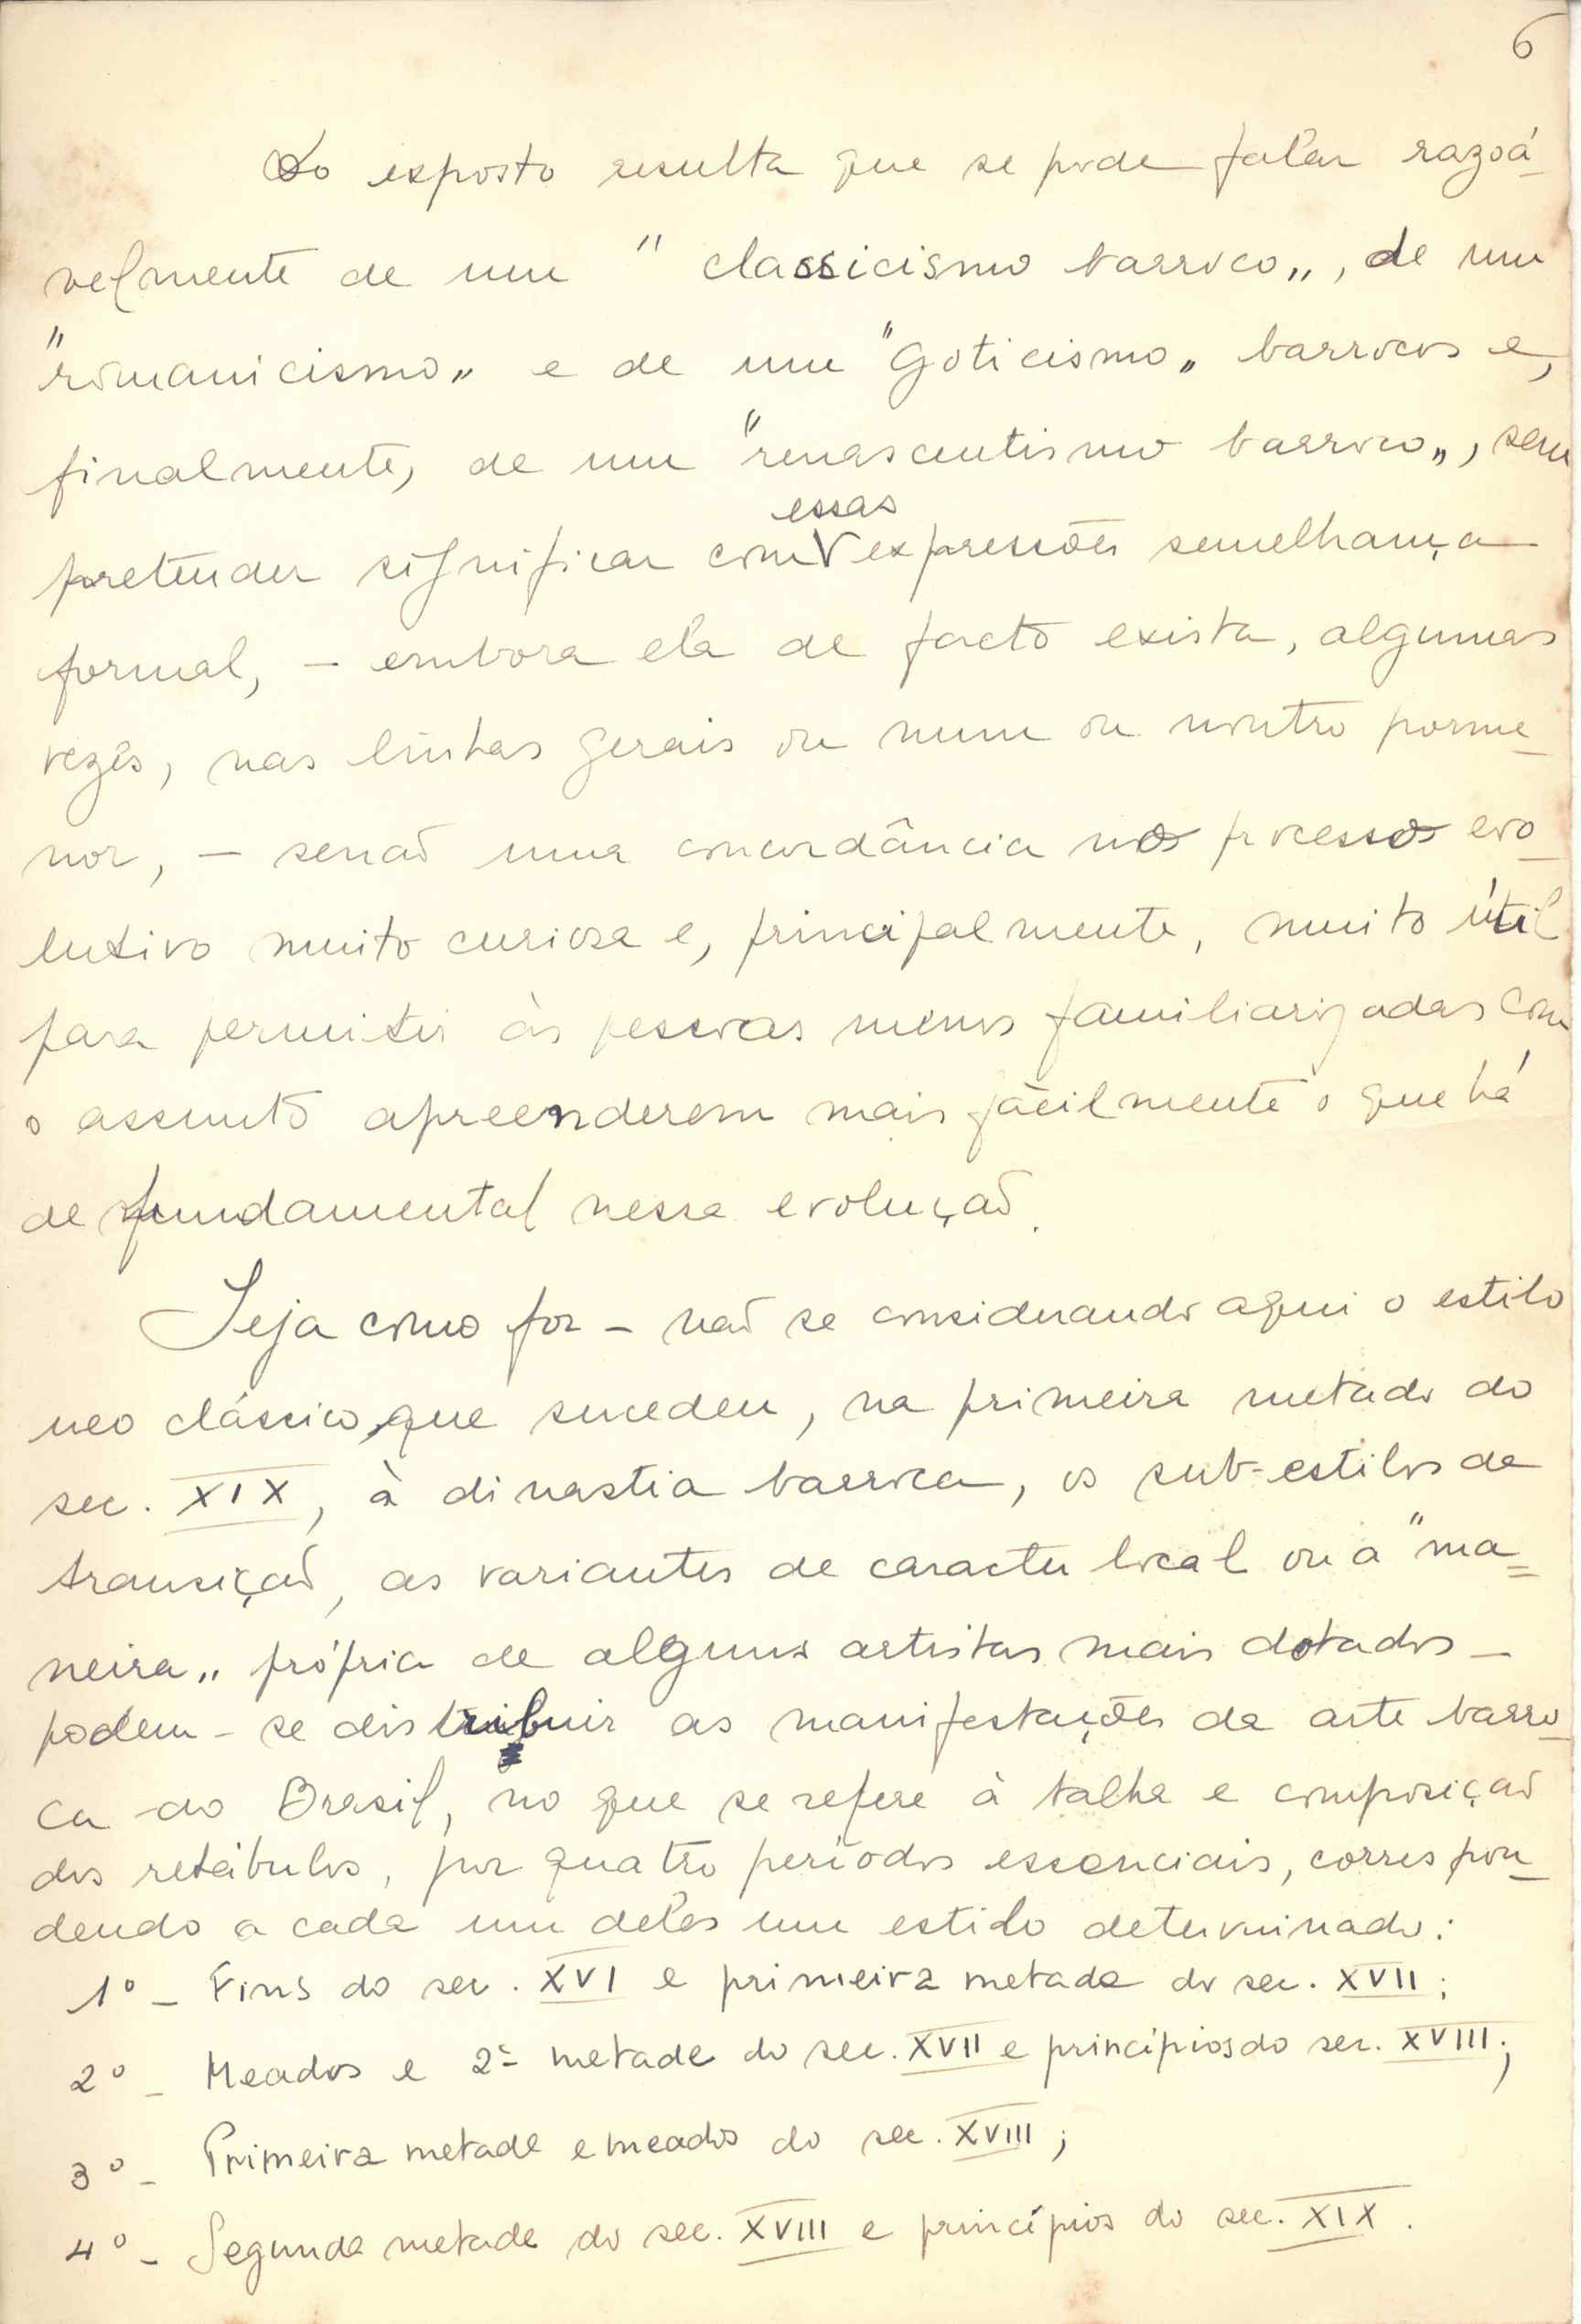 6
Do exposto resulta que se pode falar razoá-
velmente de um "classicismo barroco„, de um
"romanicismo„ e de um "goticismo„ barrocos e,
finalmente, de um "renascentismo barroco„, sem
essas
pretender significar com expressões semelhança
formal, – embora ela de facto exista, algumas
vezes, nas linhas gerais ou num ou noutro porme-
nor, – senão uma concordância no processo evo-
lutivo muito curiosa e, principalmente, muito útil
para permitir às pessoas menos familiarizadas com
o assunto apreenderem mais fàcilmente o que há
de fundamental nessa evolução.
Seja como for – não se considerando aqui o estilo
neo clássico, que sucedeu, na primeira metade do
sec. XIX, à dinastia barroca, os sub-estilos de
transição, as variantes de caracter local ou a "ma=
neira„ própria de alguns artistas mais dotados –
podem-se distribuir as manifestações da arte barro-
ca do Brasil, no que se refere à talha e composição
dos retábulos, por quatro períodos essenciais, correspon-
dendo a cada um deles um estilo determinado:
1º – Fins do sec. XVI e primeira metade do sec. XVII;
2º – Meados e 2ª metade do sec. XVII e princípios do sec. XVIII;
3º – Primeira metade e meados do sec. XVIII;
4º – Segunda metade do sec. XVIII e princípios do sec. XIX.